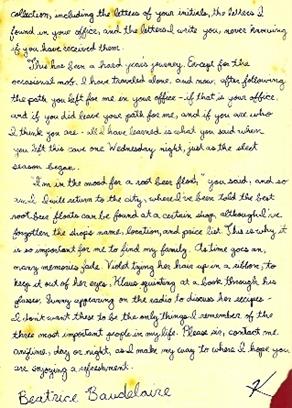 collection, including the letters of your initials, the letters I
found in your office, and the letters I write you, never knowing
if you have received them.
This has been a hard year's journey. Except for the
occasional mob, I have traveled alone, and now, after following
the path you left for me in your office - if that is your office,
and if you did leave your path for me, and if you are who
I think you are - all I have learned is what you said when
you left this cave one Wednesday night, just as the sleet
season began.
"I'm in the mood for a root beer float," you said, and so
am I. I will return to the city, where I've been told the best
root beer floats can be found at a certain shop, although I've
forgotten the shop's name, location, and price list. This is why it
is so important for me to find my family. As time goes on,
many memories fade. Violet tying her hair up in a ribbon, to
keep it out of her eyes, Klaus squinting at a book through his
glasses, Sunny appearing on the radio to discuss her recipes -
I don't want these to be the only things I remember of the
three most important people in my life. Please sir, contact me.
anytime, day or night, as I make my way to where I hope you
are enjoying a refreshment.
Beatrice Baudelaire